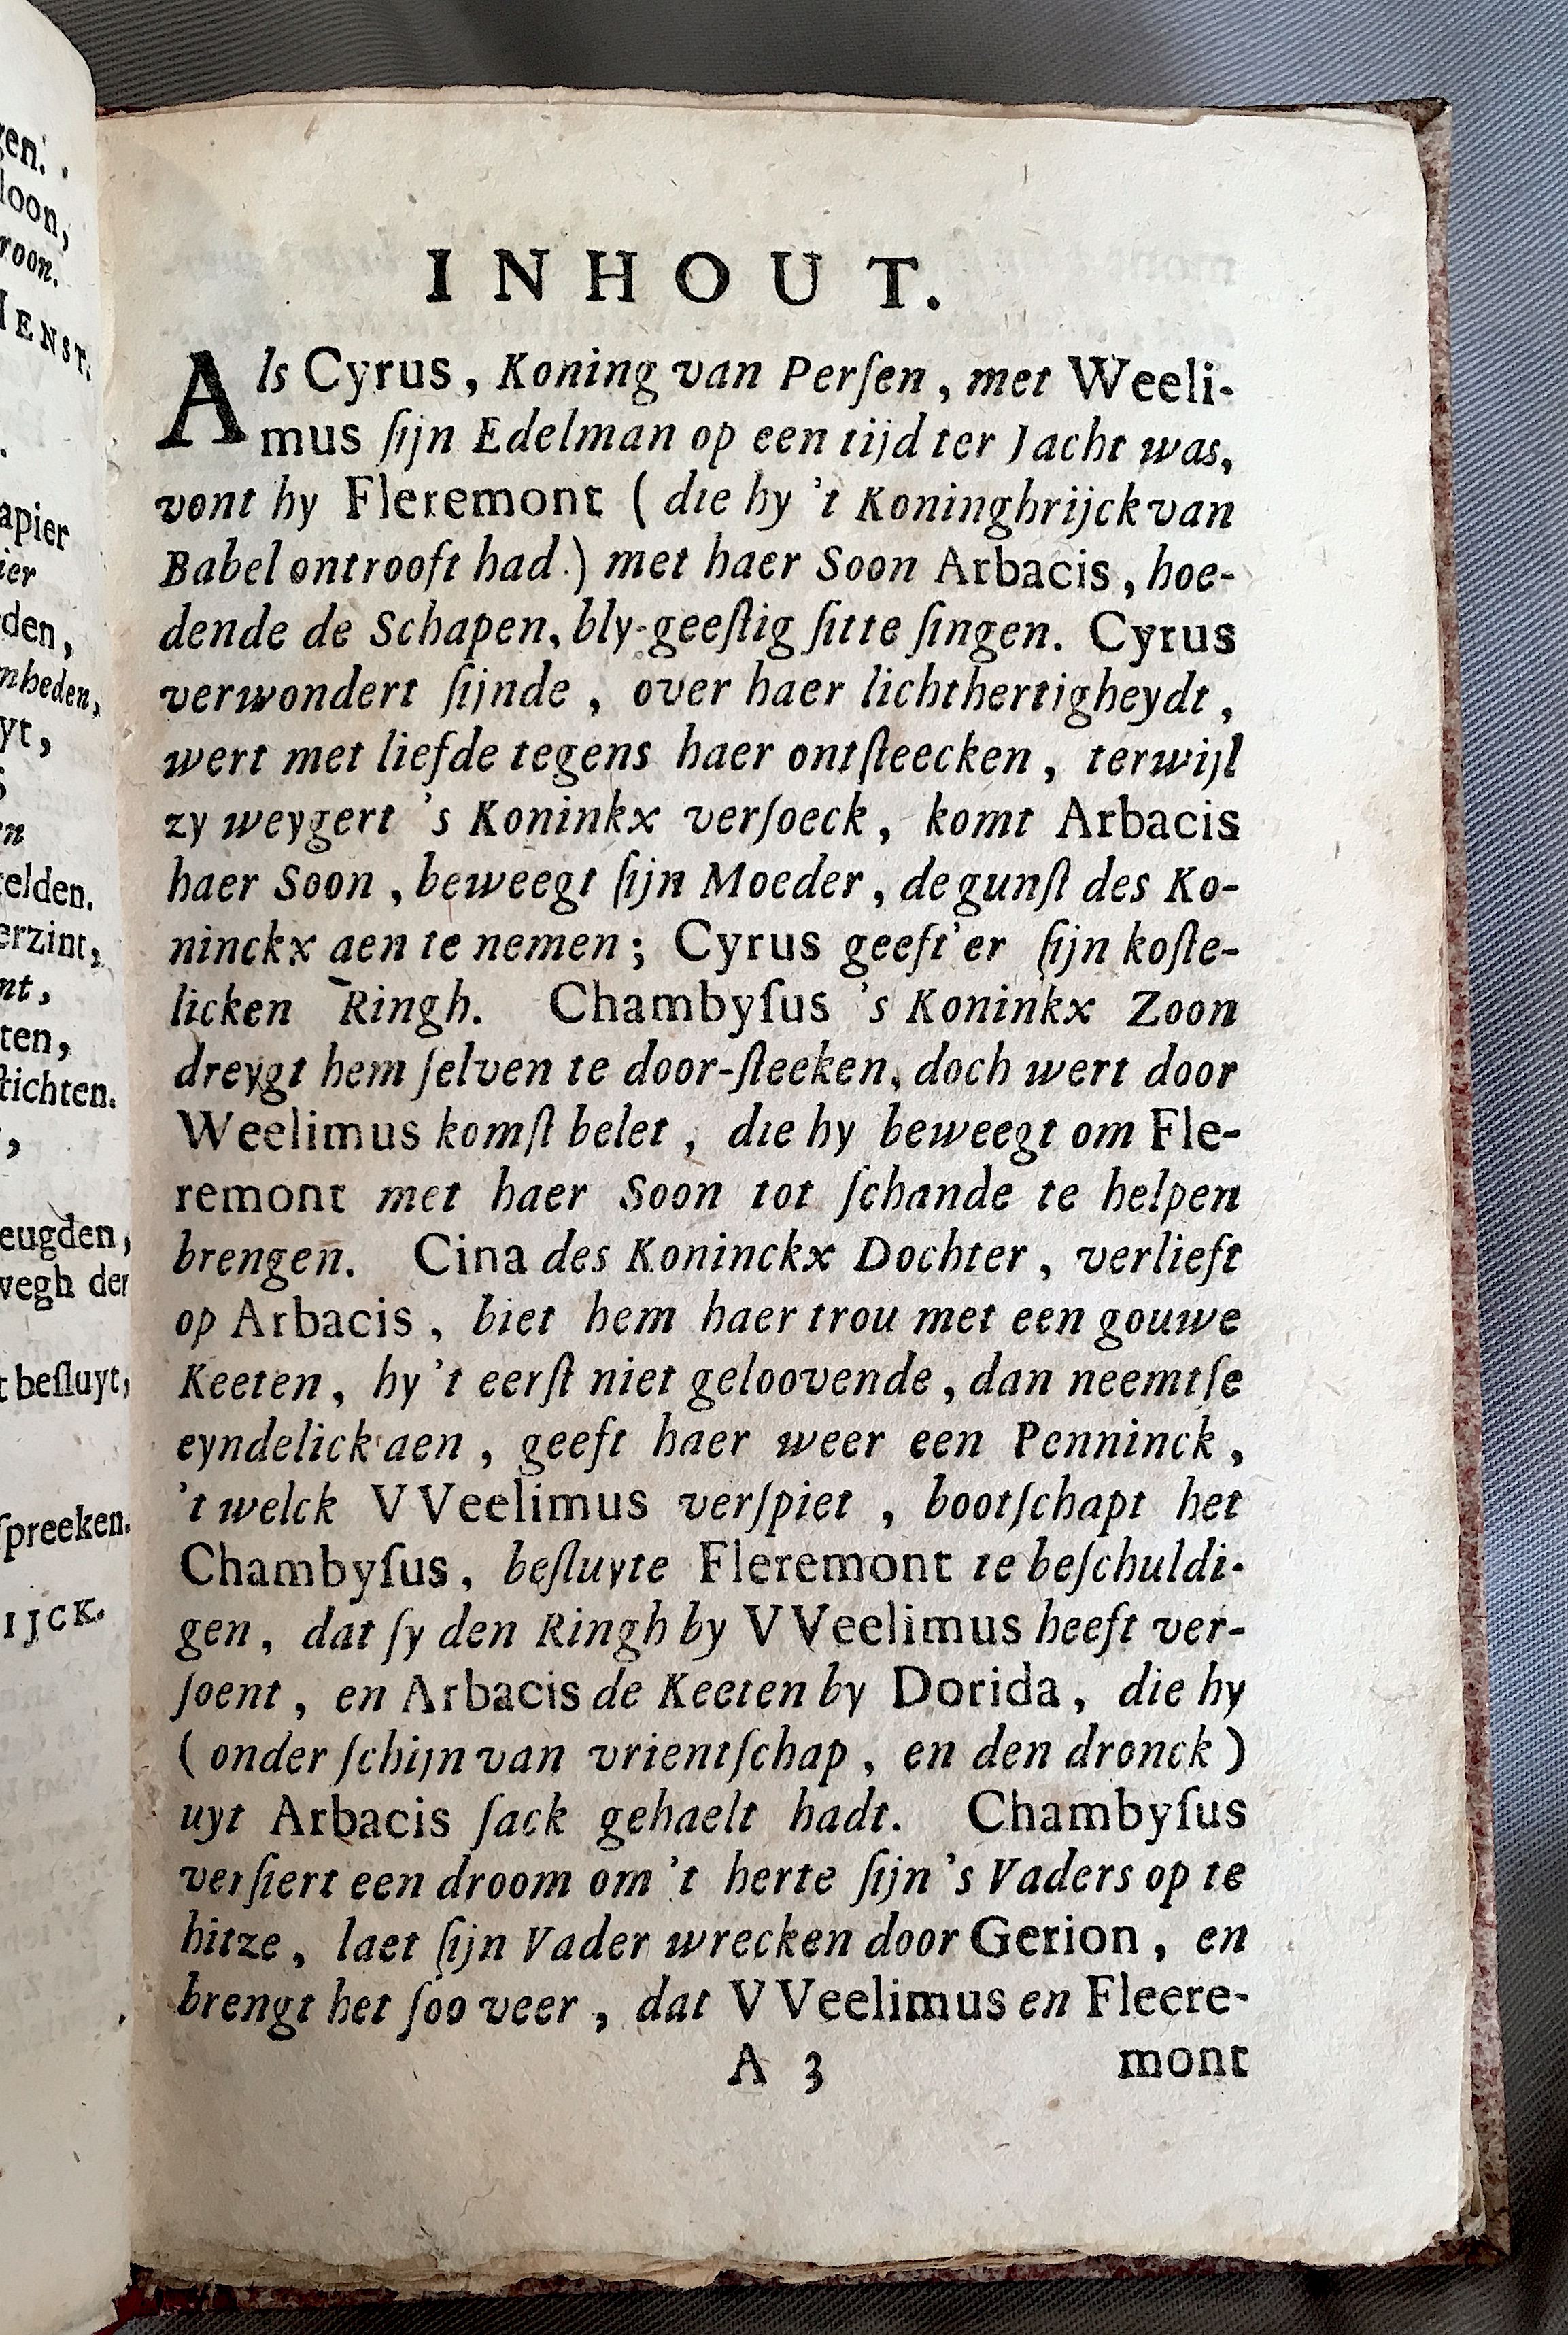 gen.
loon,
roon.
IENST.
apier
ier
den,
nheden,
yt,
en
elden.
erzint,
nt,
ten,
ſtichten.
eugden,
wegh der
t beſluyt,
ſpreeken.
IJCK.
INHOUT.
Als Cyrus, Koning van Perſen, met Weeli-
mus ſijn Edelman op een tijd ter Jacht was,
vont hy Fleremont ( die hy 't Koninghrijck van
Babel ontrooft had ) met haer Soon Arbacis, hoe-
dende de Schapen, bly-geeſtig ſitte ſingen. Cyrus
verwondert ſijnde, over haer lichthertigheydt,
wert met liefde tegens haer ontſteecken, terwijl
zy weygert 's Koninkx verſoeck, komt Arbacis
haer Soon, beweegt ſijn Moeder, de gunſt des Ko-
ninckx aen te nemen; Cyrus geeft'er ſijn koſte-
licken Ringh. Chambyſus 's Koninkx Zoon
dreygt hem ſelven te door-ſteeken, doch wert door
Weelimus komſt belet, die hy beweegt om Fle-
remont met haer Soon tot ſchande te helpen
brengen. Cina des Koninckx Dochter, verlieft
op Arbacis, biet hem haer trou met een gouwe
Keeten, hy 't eerſt niet geloovende, dan neemtſe
eyndelick aen, geeft haer weer een Penninck,
't welck VVeelimus verſpiet, bootſchapt het
Chambyſus, beſluyte Fleremont te beſchuldi-
gen, dat ſy den Ringh by VVeelimus heeft ver-
ſoent, en Arbacis de Keeten by Dorida, die hy
( onder ſchijn van vrientſchap, en den dronck )
uyt Arbacis ſack gehaelt hadt. Chambyſus
verſiert een droom om 't herte ſijn 's Vaders op te
hitze, laet ſijn Vader wrecken door Gerion, en
brengt het ſoo veer, dat VVeelimus en Fleere-
A 3 mont